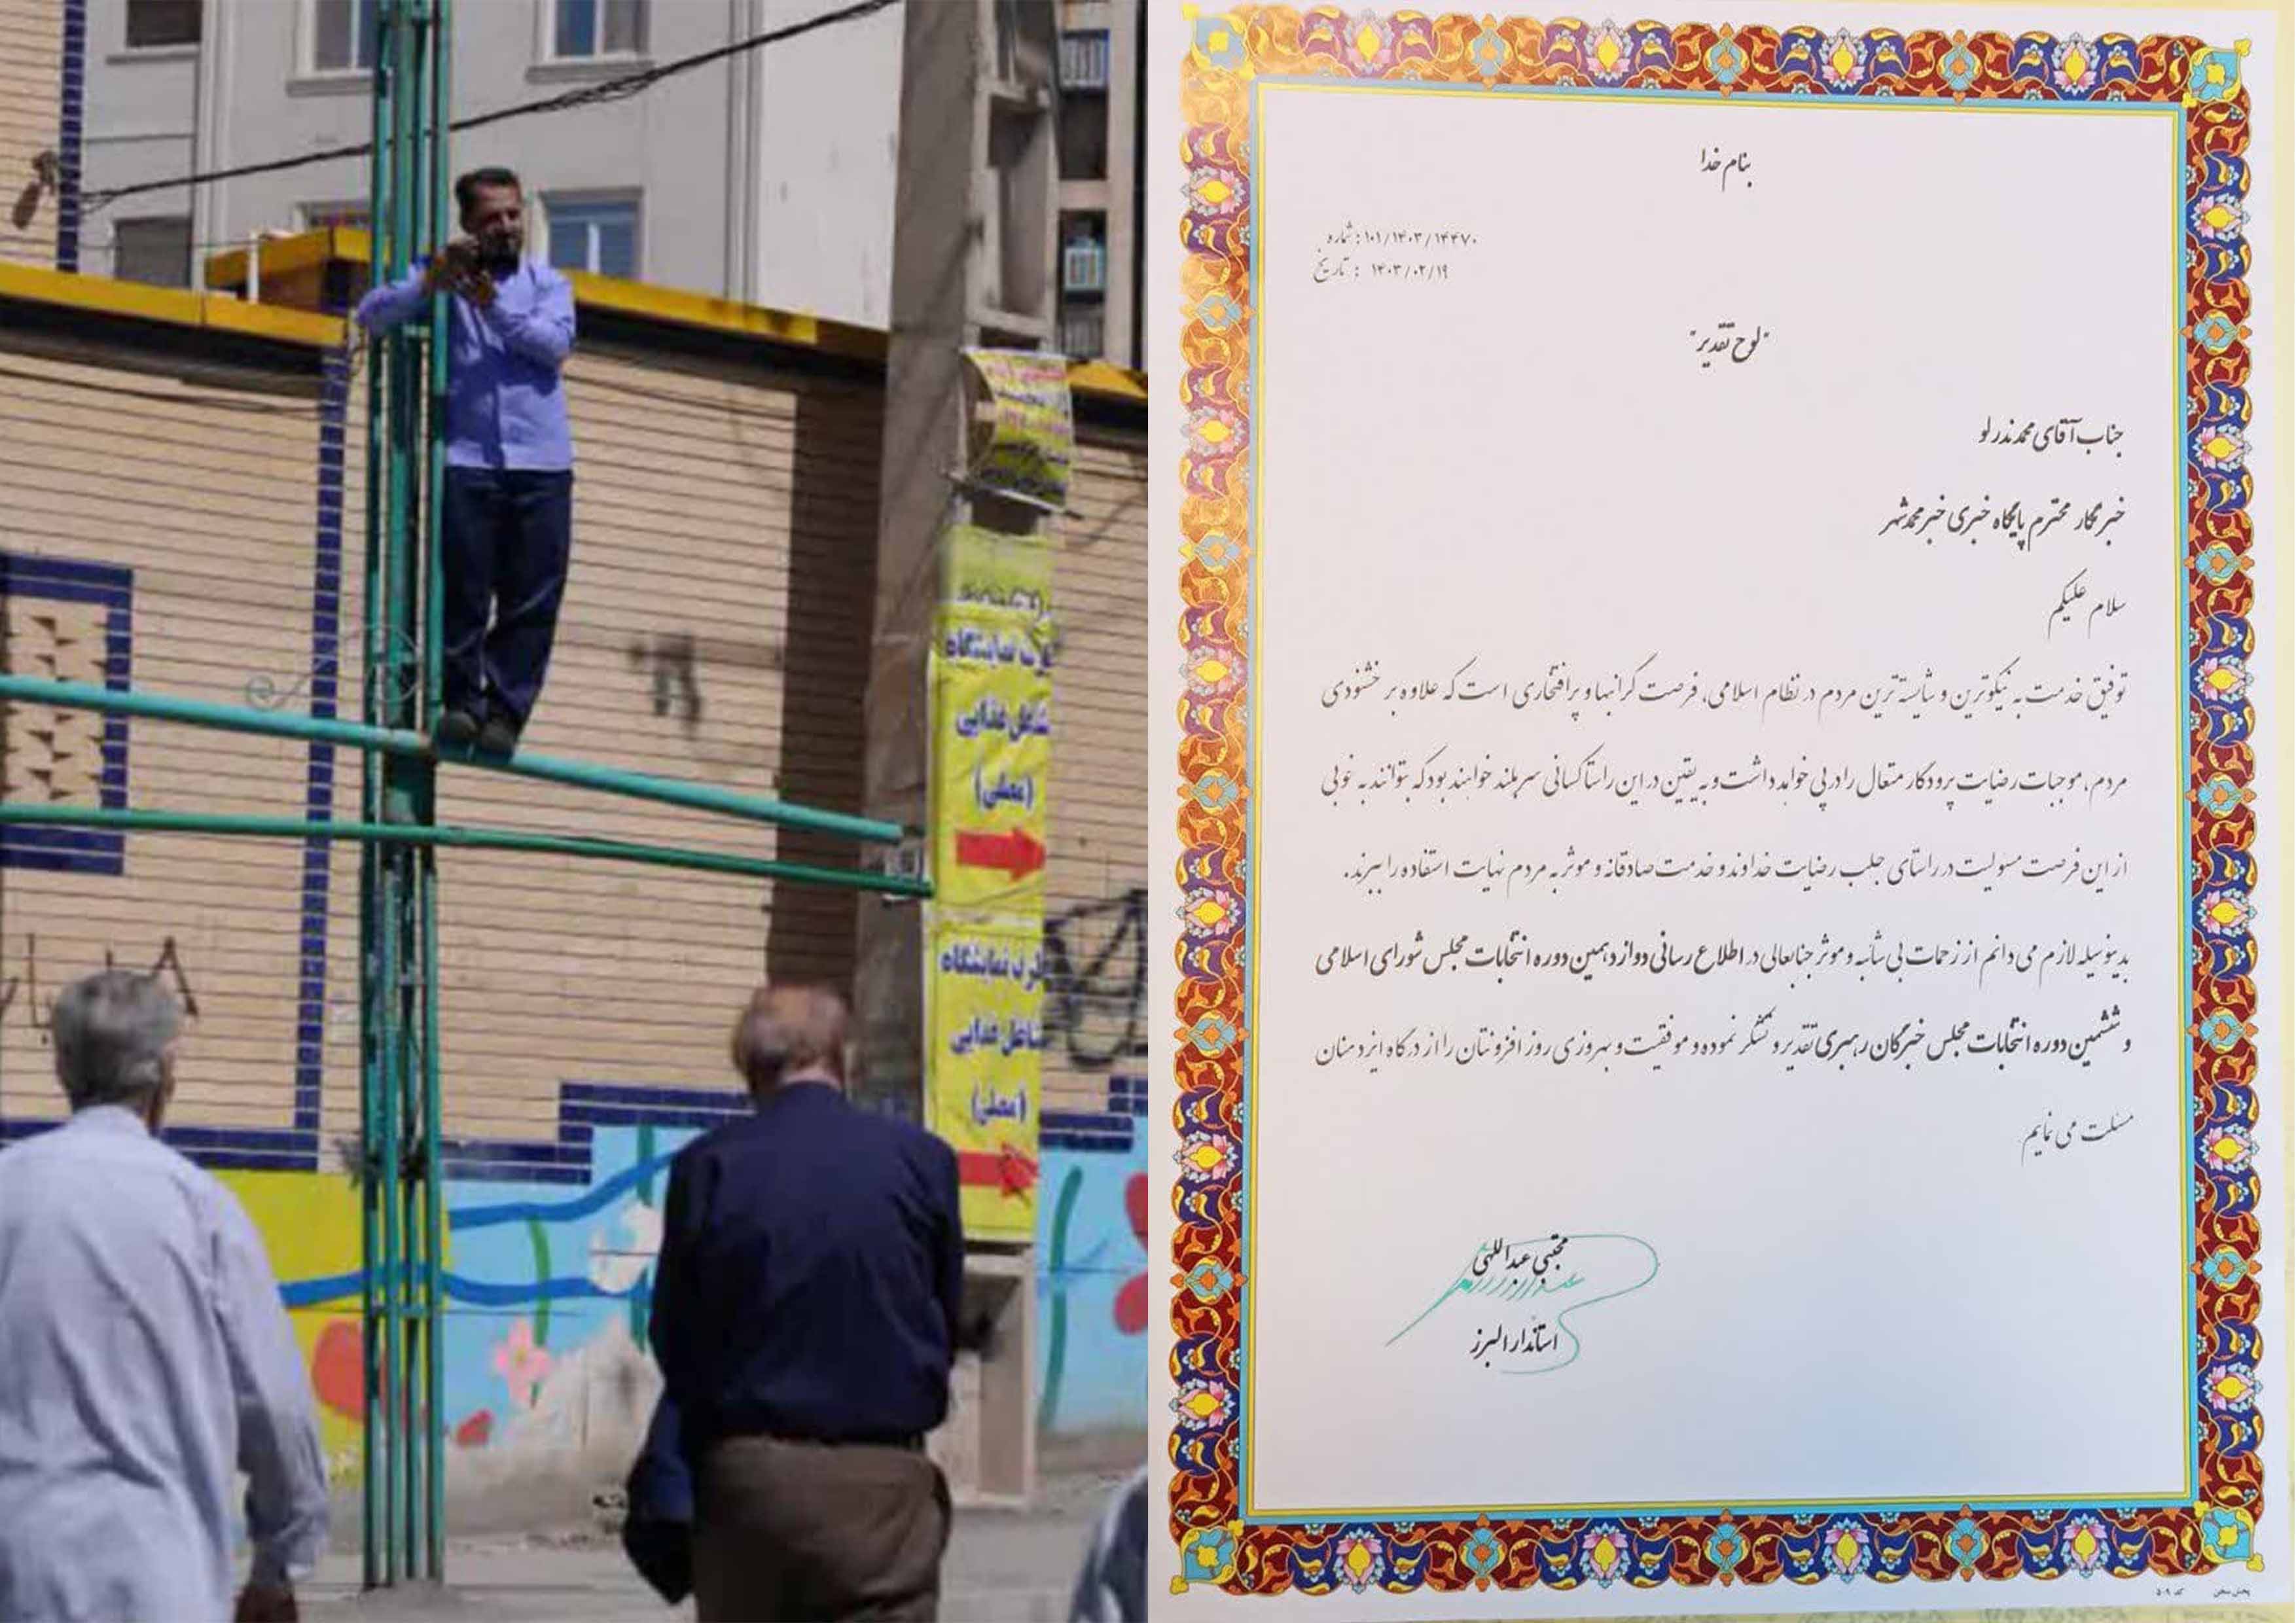 نمایشگاه
مشاغل غذایی
(محلی)
نمایشگاه
مشاغل غذایی
(محلی)
بنام خدا
شماره : ۱۰۱/۱۴۰۳/۱۴۴۷۰
تاریخ : ۱۴۰۳/۰۲/۱۹
"لوح تقدیر"
جناب آقای محمد نذرلو
خبرنگار محترم پایگاه خبری خبر محمدشهر
سلام علیکم
توفیق خدمت به نیکوترین و شایسته ترین مردم در نظام اسلامی، فرصت گرانبها و پرافتخاری است که علاوه بر خشنودی
مردم، موجبات رضایت پرودگار متعال را در پی خواهد داشت و به یقین در این راستا کسانی سربلند خواهند بود که بتوانند به خوبی
از این فرصت مسولیت در راستای جلب رضایت خداوند و خدمت صادقانه و موثر به مردم نهایت استفاده را ببرند.
بدینوسیله لازم می دانم از زحمات بی شائبه و موثر جنابعالی در اطلاع رسانی دوازدهمین دوره انتخابات مجلس شورای اسلامی
و ششمین دوره انتخابات مجلس خبرگان رهبری تقدیر و تشکر نموده و موفقیت و بهروزی روز افزونتان را از درگاه ایزد منان
مسئلت می نمایم
مجتبی عبداللهی
استاندار البرز
پخش سخن کد ۵۰۹